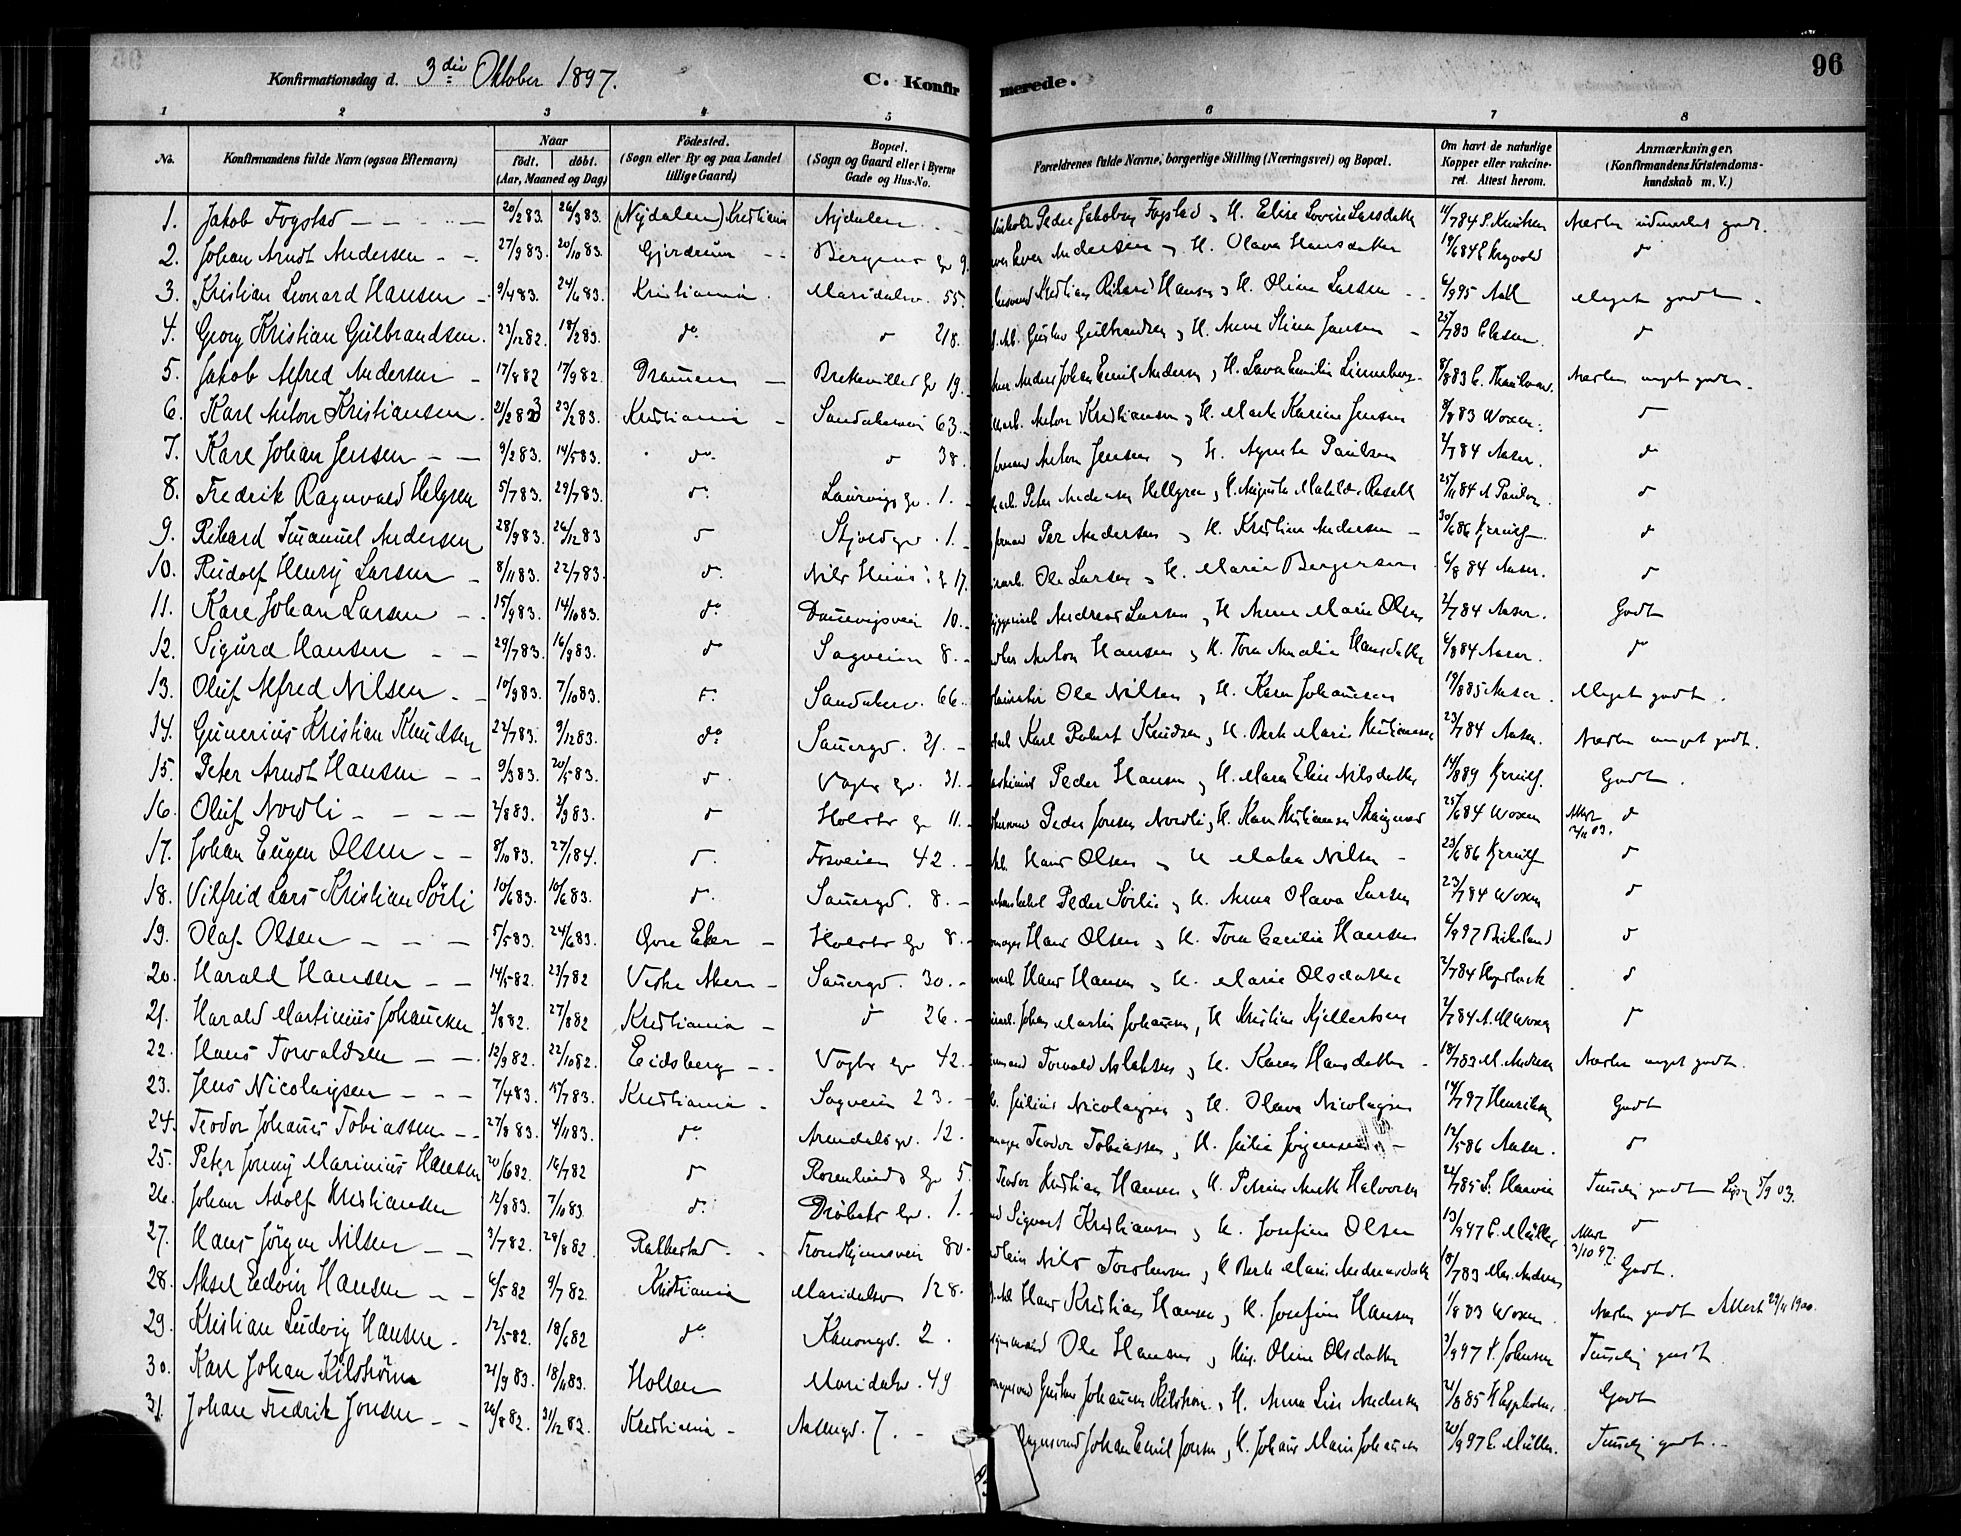 96
Konfirmationsdag d. 3die Oktober 1897. C. Konfirmerede.
1 2 3 4 5 6 7 8
No. Konfirmandens fulde Navn (ogsaa Efternavn) Naar født. døbt. (Aar, Maaned og Dag) Fødested. (Sogn eller By og paa Landet tillige Gaard) Bopæl. (Sogn og Gaard eller i Byerne Gade og Hus-No. Forældrenes fulde Navne, borgerlige Stilling (Næringsvei) og Bopæl. Om havt de naturlige Kopper eller vakcineret. Attest herom. Anmærkninger. (Konfirmandens Kristendomskundskab m. V.)
1. Jakob Fogstad 20/2 83. 26/3 83. (Nydalen) Kristiania Nydalen Peder Jakobsen Fogstad og H. Elise Lovise Larsdatter 4/7 84 S. Knutsen Næsten udmærket godt.
2. Johan Arndt Andersen 27/9 83. 20/10 83. Gjerdrum Bergens g. 9. Andersen og H. Olava Hansdatter 19/6 84 do
3. Kristian Leonard Hansen 9/4 83. 24/6 83. Kristiania. Maridalsv. 55. Kristian Rikard Hansen og H. Oline Larsen 6/9 95 Aall Meget godt
4. Georg Kristian Gulbrandsen. 23/12 82. 18/2 83. do do 218. Gustav Gulbrandsen og H. Anne Stina Jansen 25/7 83 do
5. Jakob Alfred Andersen 17/8 82 17/9 82. Drammen Brekkevilles g. 19. Anders Johan Emil Andersen, H. Lava Emilie Linneberg 8/8 83 Næsten meget godt.
6. Karl Anton Kristiansen. 21/2 83 23/2 83. Kristiania Sandakerveien 63. Anton Kristiansen og H. Marte Karine Jensen 8/8 83 Woxen. do
7. Karl Johan Jensen 9/2 83. 14/5 83. do do 38. Anton Jensen og H. Agnete Paulsen 2/7 84 Aaser. do
8. Fredrik Ragnvald Helgren 5/7 83. 29/7 83. do Laurvigs g. 1. Peter Andersen Hellgren, H. Augusta Matilde 25/11 84 A Paulson do
9. Rikard Imanuel Andersen 28/9 83. 26/12 83 do Skjolds g. 1. Per Andersen og H. Kristine Andersen 30/6 86 Kjerulf. do
10. Rudolf Henry Larsen 8/11 83. 22/7 83. do Nils Huus' g. 17. Ole Larsen og H. Marie Bergersen 6/8 84 Aaser. do
11. Karl Johan Larsen 15/9 83. 14/10 83. do Dannevigsvei 10. Andreas Larsen, H Anne Marie Olsen 2/7 84 Aaser. Godt
12. Sigurd Hansen 29/7 83. 16/9 83. do Sagveien 8. Anton Hansen, H. Tora Amalie Hansdatter 6/8 84 Aaser. do
13. Oluf Alfred Nilsen 10/9 83. 7/10 83. do Sandakerv. 66. Ole Nilsen, H. Karen Johansen 19/8 85 Aaser. Meget godt.
14. Gunerius Kristian Knudsen 22/7 83. 9/12 83. do Sannergd. 21. Karl Robert Knudsen, H. Berte Marie Kristiansen 23/7 84 Aaser. Næsten meget godt.
15. Peter Arndt Hansen 9/3 83. 20/5 83. do Vogts g. 31. Peder Hansen, H. Maren Eline Nilsdatter 14/8 89 Kjerulf. Godt.
16. Oluf Nordli 2/8 83. 2/9 83. do Holsts g. 11. Peder Jensen Nordli, H. Karen Kristiansen 25/6 84 Woxen Attest 2/11 03. do
17. Johan Eugen Olsen 8/10 83. 27/1 84. do Fosveien 42. Hans Olsen og H Malea Nilsen 23/6 86 Kjerulf do
18. Vilfrid Lars Kristian Sörli 10/6 83. 10/6 83. do Sannergd. 8. Peder Sörlie, H. Anna Olava Larsen 23/7 84 Woxen do
19. Olaf Olsen 5/5 83. 24/6 83. Øvre Eker Holsts g. 8. Hans Olsen, H. Tora Cecilie Hansen 6/9 97 Birkeland do
20. Harald Hansen 14/5 82. 23/7 82 Vestre Aker Sannergd. 30. Hans Hansen, H. Marie Olsdatter 2/7 84 do
21. Harald Martinius Johansen 2/8 82. 27/8 82 Kristiania do 26. Johan Martin Johansen, H Kristine Kjellertsen 2/7 84 A. M Woxen do
22. Hans Torvaldsen 12/9 82. 22/10 82. Eidsberg Vogts g. 42. Torvald Aslaksen og H. Karen Hansdatter 18/7 83 M. Andersen Næsten meget godt.
23. Jens Nicolaysen 7/4 83. 15/7 83. Kristiania Sagveien 23. Julius Nicolaysen og H. Olava Nicolaysen 14/7 97 Henriksen Godt
24. Teodor Johannes Tobiassen 27/8 83 4/11 83. do Arendalsgd. 12. Teodor Tobiassen, H. Julie Jørgensen 12/5 86 Aaser. do
25. Peter Jonny Marinius Hansen 20/6 82. 16/7 82 do Rosenlunds g. 5. Teodor Kristian Hansen, H. Petrine Halvorsen 22/7 85 Temmelig godt 5/9 03.
26. Johan Adolf Kristiansen 12/8 83. 7/10 83. do Drøbaks g. 1. Sigvart Kristiansen og H. Josefine Olsen 13/9 97 C. Müller Attest 2/10 97. do
27. Hans Jörgen Nilsen 3/7 82. 28/8 82. Rakkestad. Trondhjemsvein 80. Nils Torstensen, H Berte Marie Andreasdatter 18/7 83 Mar. Andersen Godt.
28. Aksel Edvin Hansen 6/5 82 9/7 82. Kristiania Maridalsv 128. Hans Kristian Hansen, H. Josefine Hansen 1/8 83 Woxen. Næsten godt Attest 29/11 1900.
29. Kristian Ludvig Hansen. 12/5 82. 18/6 82 do Kanongd. 2. Ole Hansen, H. Oline Olsdatter 3/9 97 P. Johnsen Temmelig godt.
30. Karl Johan Kilström 21/9 83. 18/11 83. Holten Maridalsv. 49 Gustav Johansen Kilström, H. Anna Lise Andersen 21/8 85 Godt
31. Johan Fredrik Jonsen 26/8 82. 31/12 82. Kristiania Aasengd. 7. Johan Emil Jonsen, H. Johanne Marie Johansen 20/9 97 C. Müller. Temmelig godt.